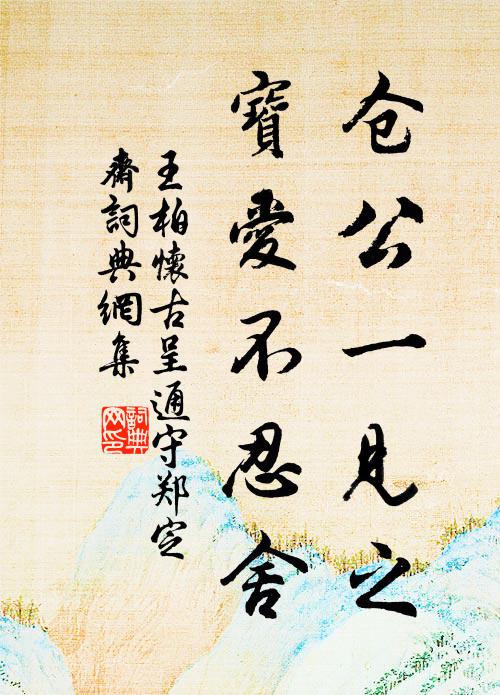 仓公一见之
寶愛不忍舍
王柏懷古呈通守郑定
齋詞典網集
詞典
网印